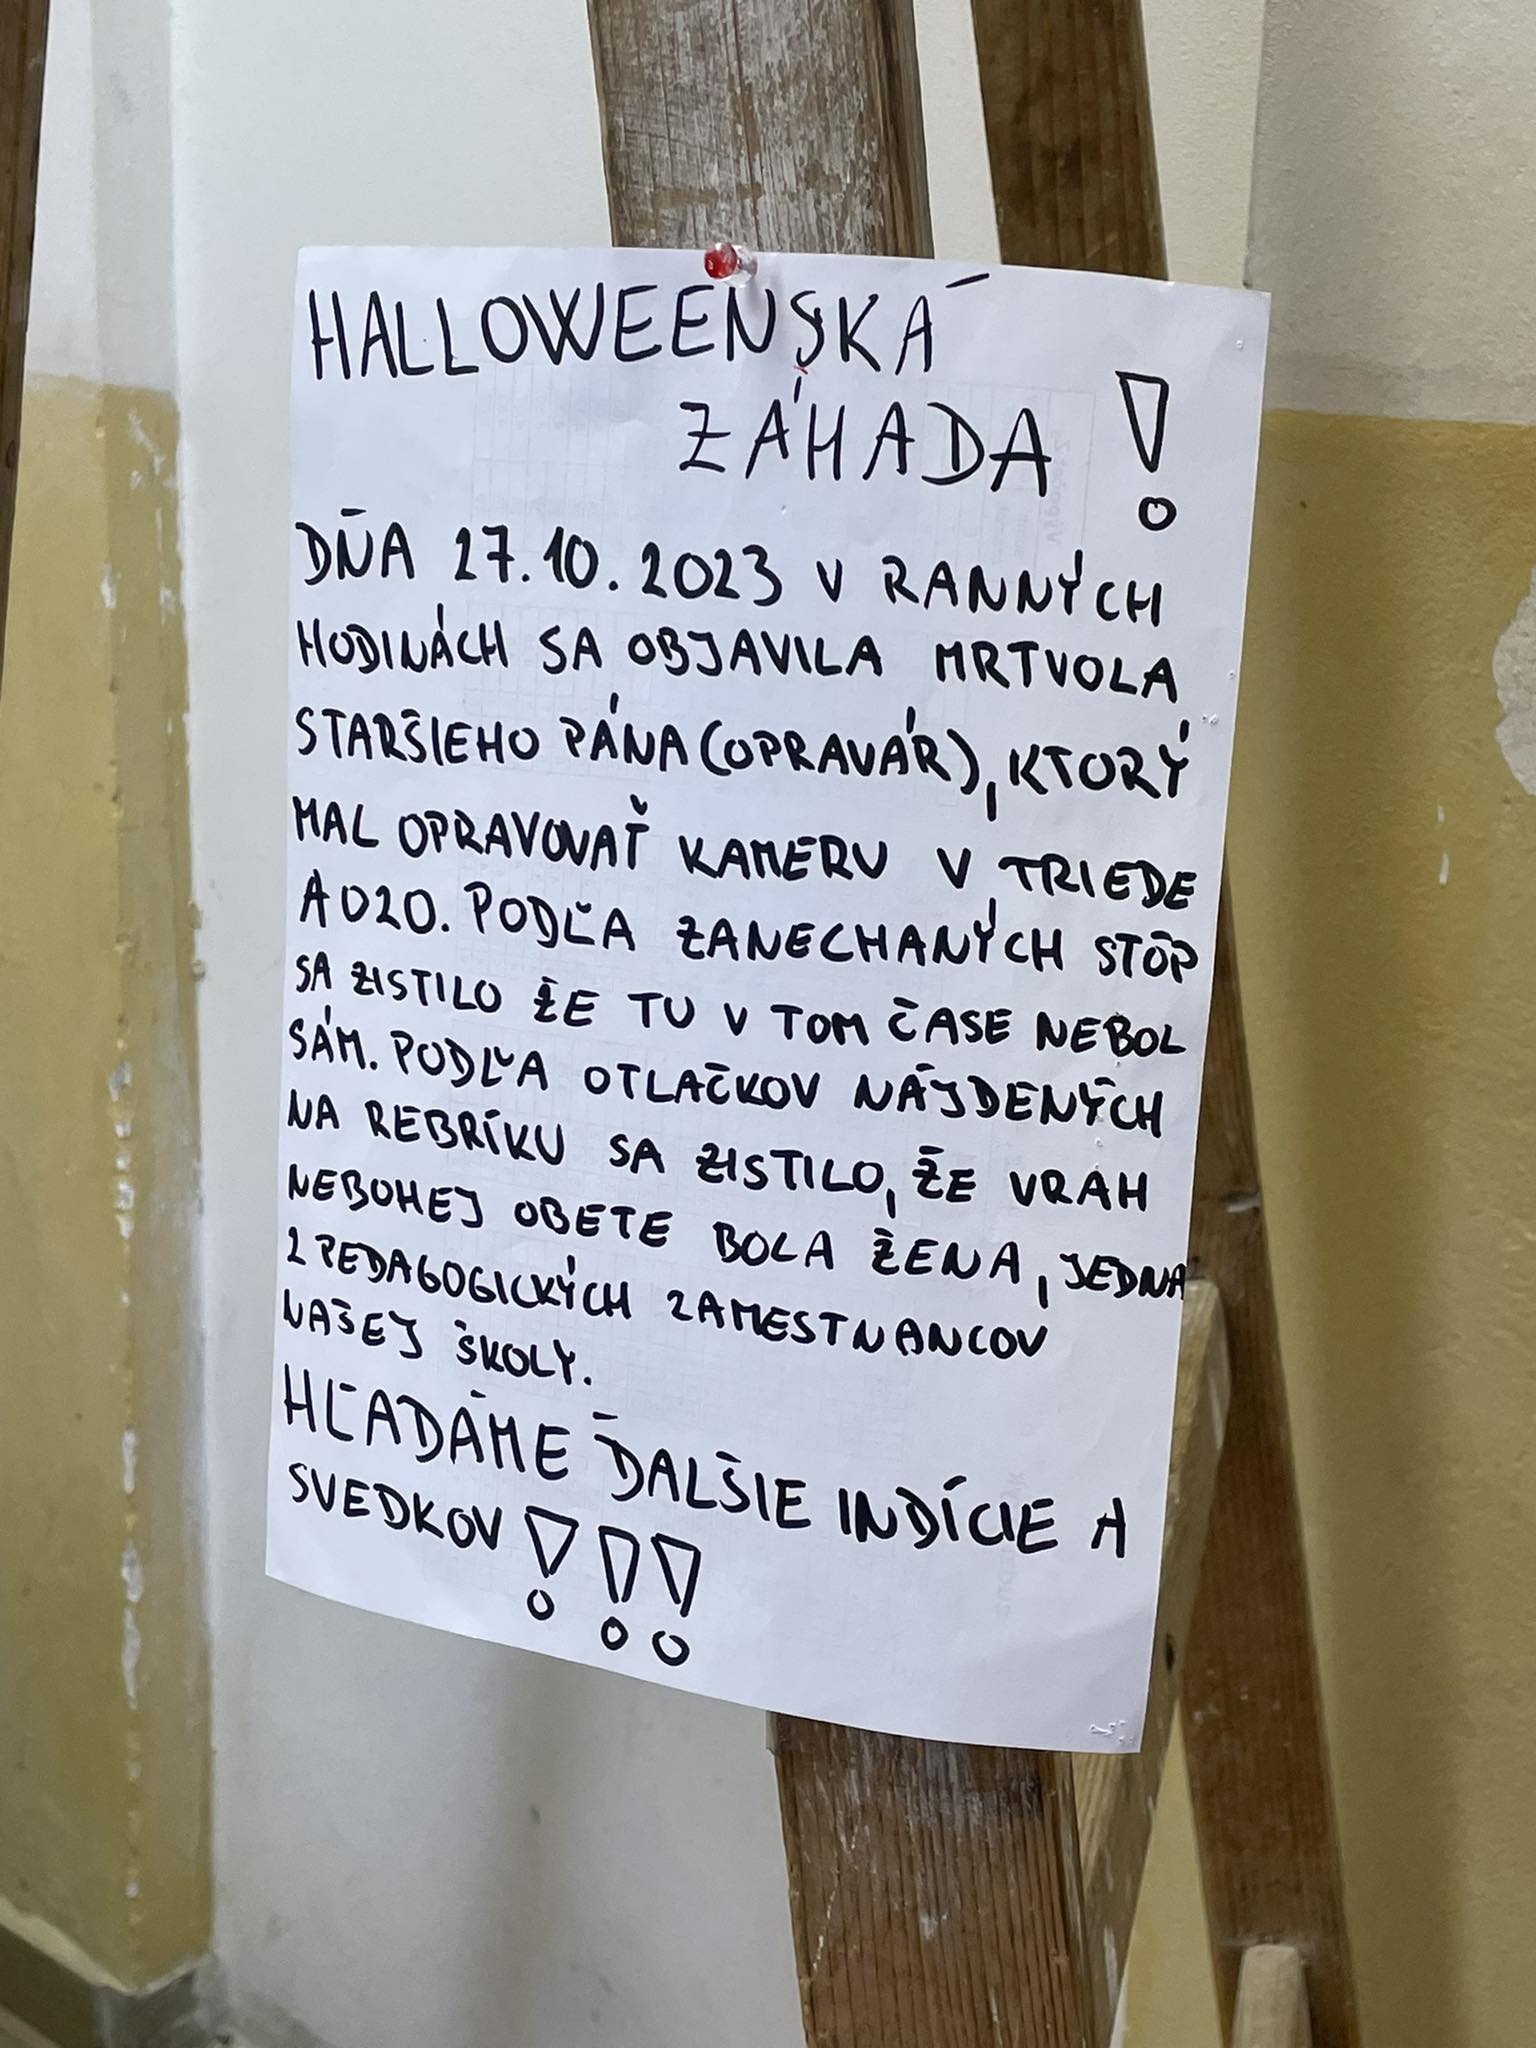 HALLOWEENSKÁ
ZÁHADA !
DŇA 27.10.2023 V RANNÝCH
HODINÁCH SA OBJAVILA MRTVOLA
STARŠIEHO PÁNA (OPRAVÁR), KTORÝ
MAL OPRAVOVAŤ KAMERU V TRIEDE
A020. PODĽA ZANECHANÝCH STÔP
SA ZISTILO ŽE TU V TOM ČASE NEBOL
SÁM. PODĽA OTLAČKOV NÁJDENÝCH
NA REBRÍKU SA ZISTILO, ŽE VRAH
NEBOHEJ OBETE BOLA ŽENA, JEDNA
Z PEDAGOGICKÝCH ZAMESTNANCOV
NAŠEJ ŠKOLY.
HĽADÁME ĎALŠIE INDÍCIE A
SVEDKOV !!!